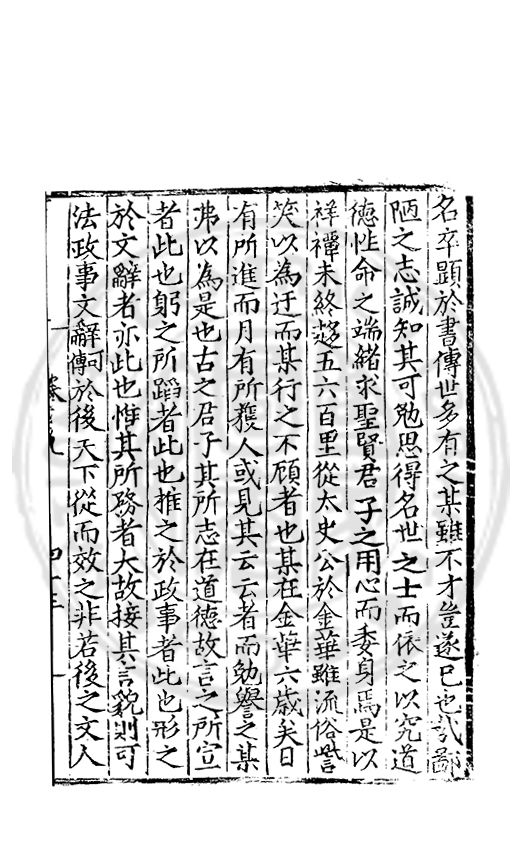 名卒顯於書傳世多有之某雖不才豈遂已也哉鄙
陋之志誠知其可勉思得名世之士而依之以究道
德性命之端緒求聖賢君子之用心而委身焉是以
祥禫未終趍五六百里從太史公於金華雖流俗訾
笑以為迂而某行之不顧者也某在金華六歲矣日
有所進而月有所獲人或見其云云者而勉譽之某
弗以為是也古之君子其所志在道德故言之所宣
者此也躬之所蹈者此也推之於政事者此也形之
於文辭者亦此也惟其所務者大故接其言貌則可
法政事文辭可傳於後天下從而效之非若後之文人